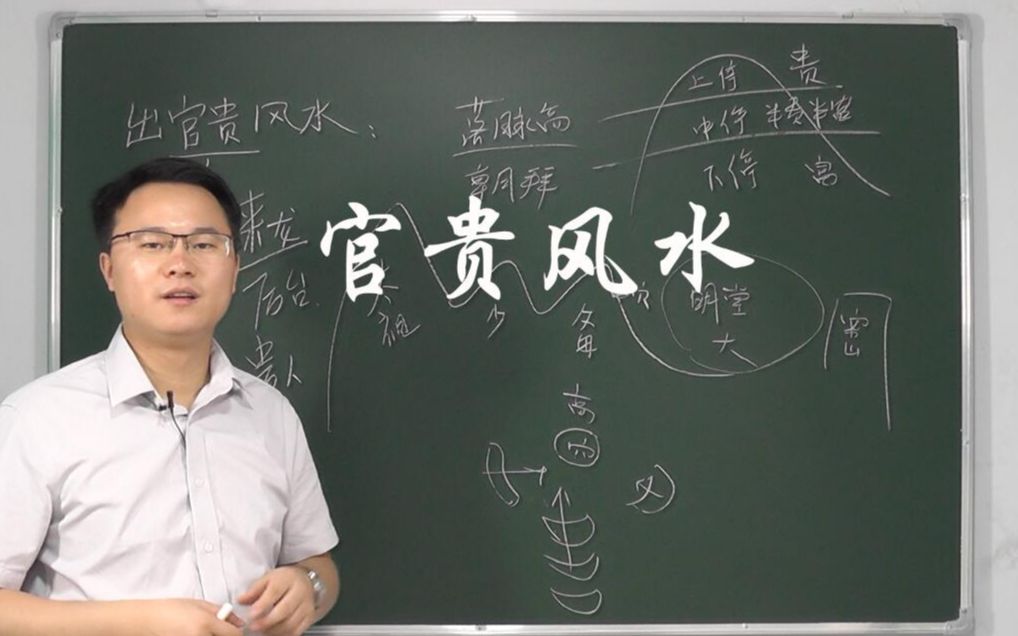 出官贵风水：
来龙
后台
贵人
落脉高
朝拜
上停 贵
中停 半贵半富
下停 富
官贵风水
太祖
少
父母
穴
明堂
大
案山
高
穴